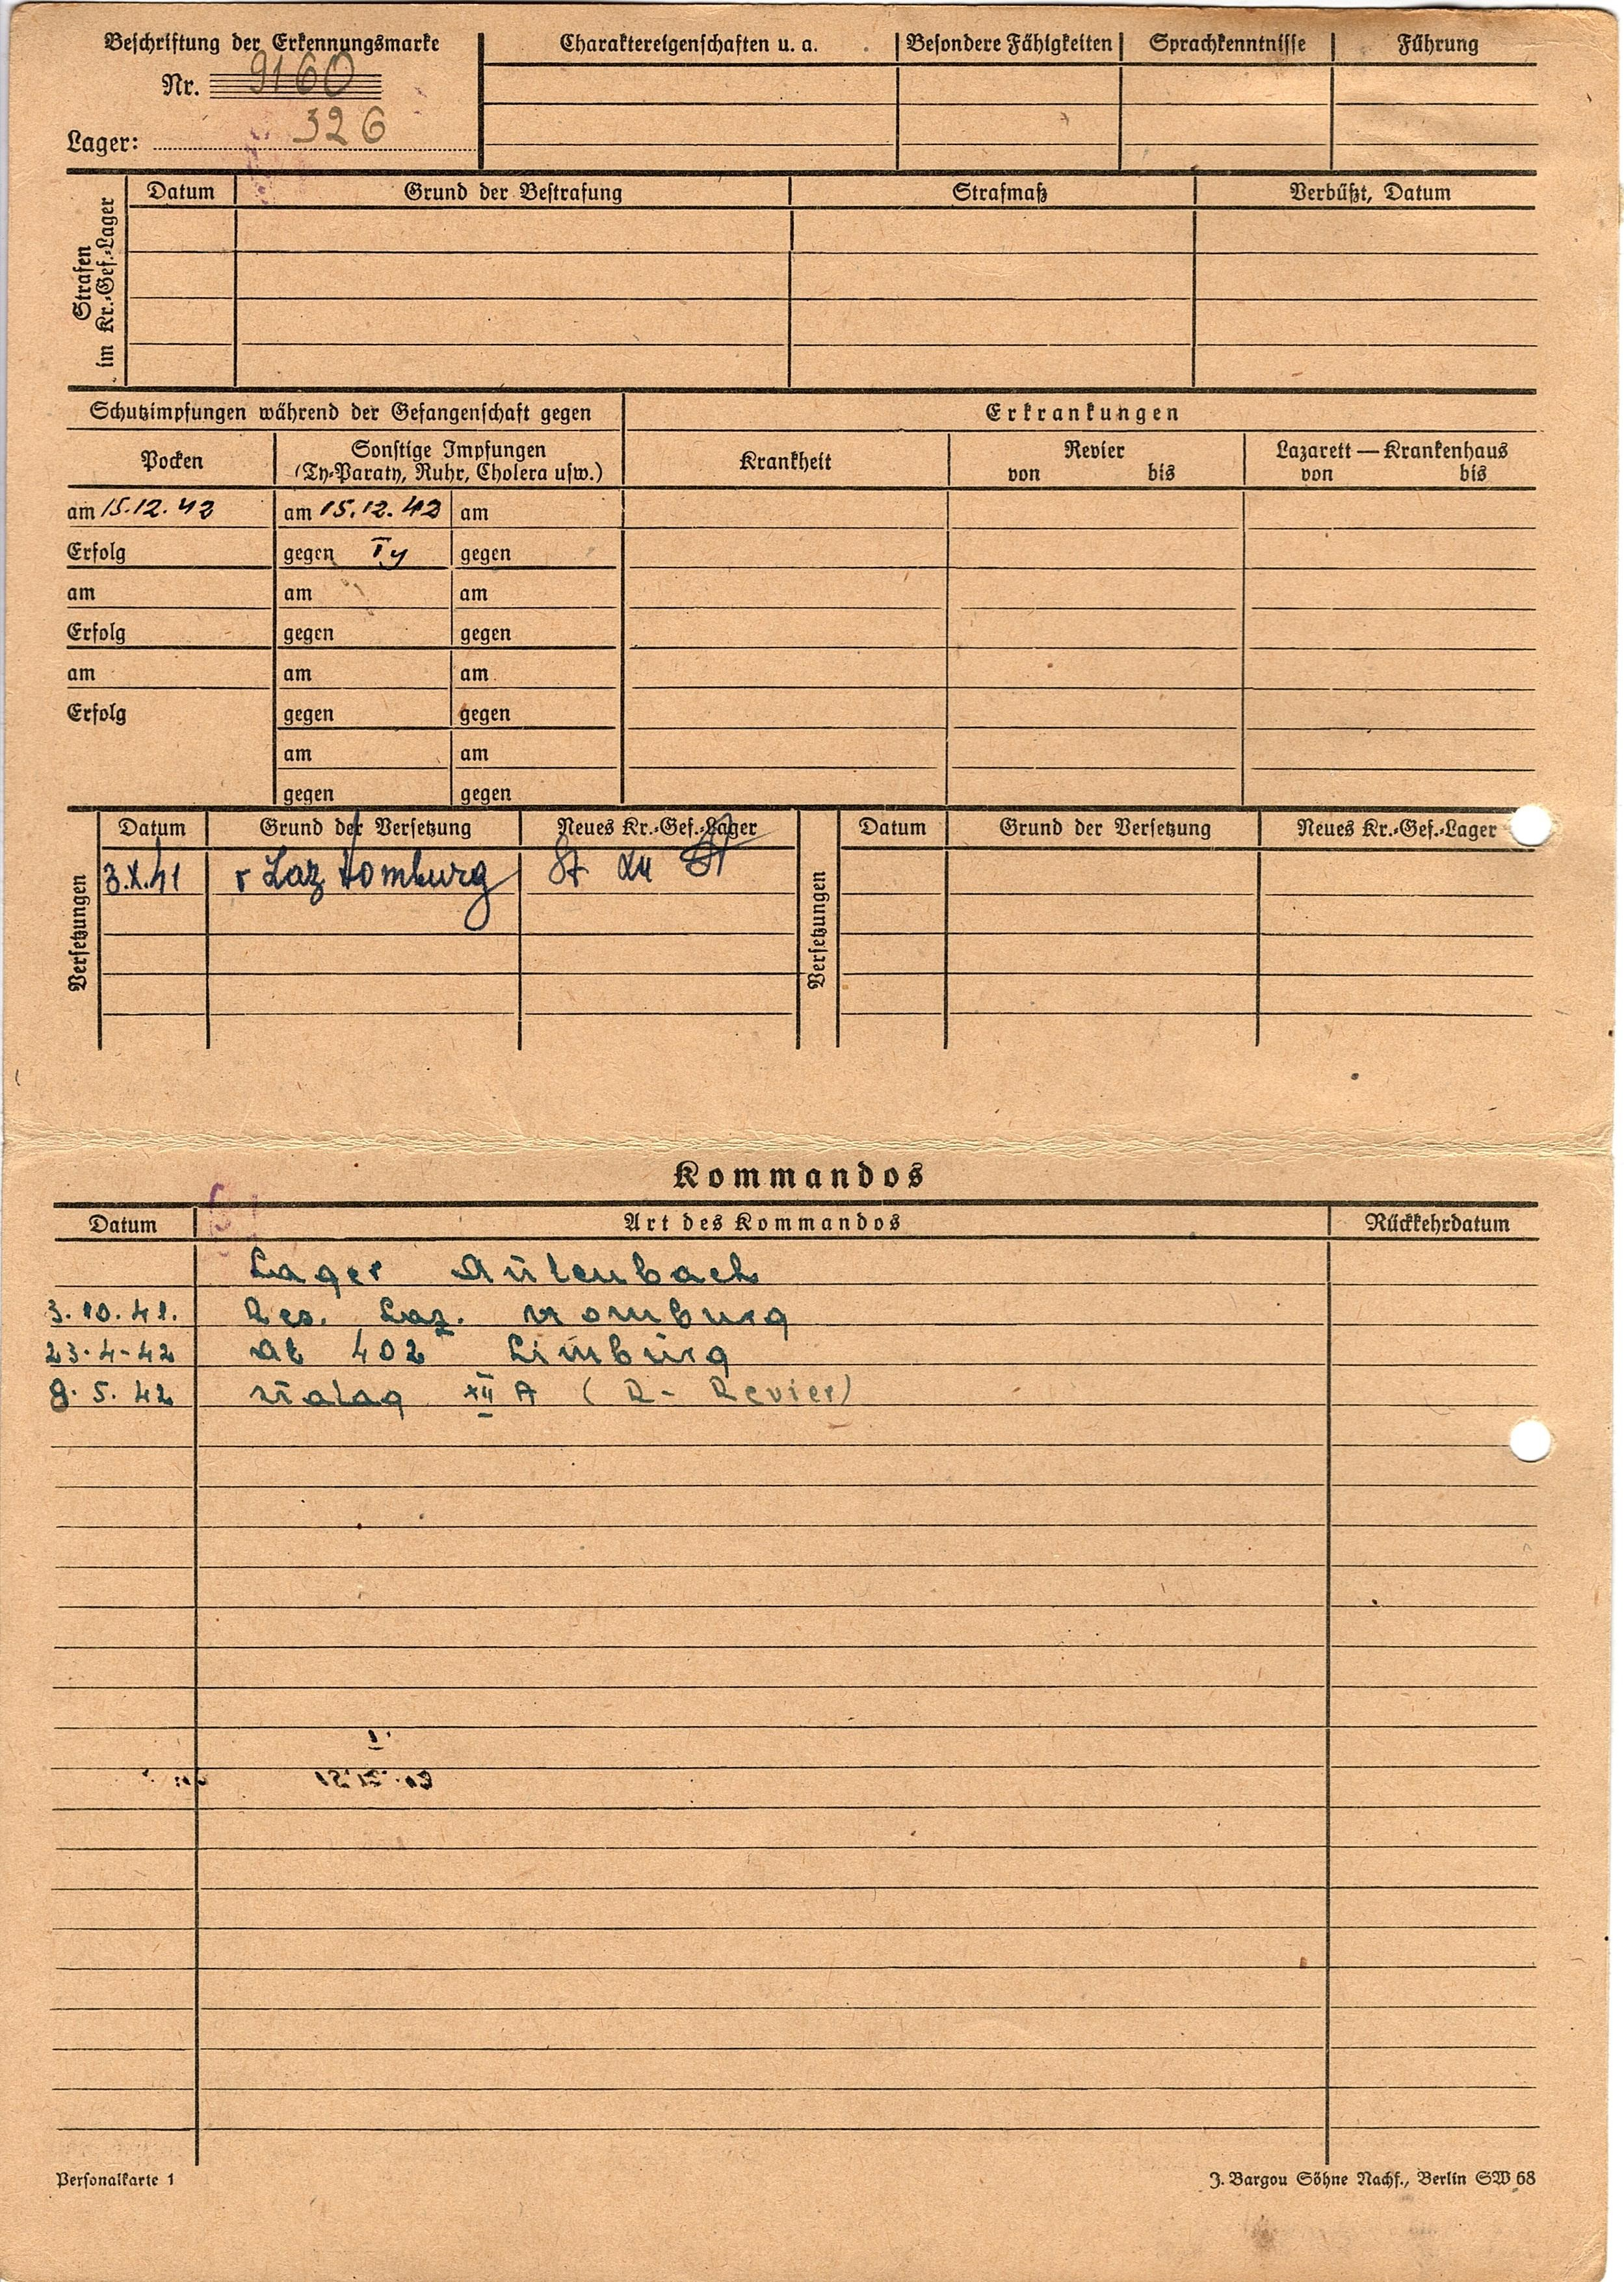 Beschriftung der Erkennungsmarke
Nr. 9160
Lager: 326
Charaktereigenschaften u. a.
Besondere Fähigkeiten
Sprachkenntnisse
Führung
Strafen im Kr.-Gef.-Lager
Datum
Grund der Bestrafung
Strafmaß
Verbüßt, Datum
Schutzimpfungen während der Gefangenschaft gegen
Erkrankungen
Pocken
Sonstige Impfungen
(Ty-Paraty, Ruhr, Cholera usw.)
Krankheit
Revier
von bis
Lazarett — Krankenhaus
von bis
am 15.12.42 am 15.12.42 am
Erfolg gegen Ty gegen
am am am
Erfolg gegen gegen
am am am
Erfolg gegen gegen
am am
gegen gegen
Versetzungen
Datum Grund der Versetzung Neues Kr.-Gef.-Lager
3.X.41 Laz Homburg
Versetzungen
Datum Grund der Versetzung Neues Kr.-Gef.-Lager
Kommandos
Datum Art des Kommandos Rückkehrdatum
Lager
3.10.41. Res. Laz. Homburg
23.4-42 402 Limburg
8.5.42 Stalag XII A (R-Revier)
Personalkarte 1
J. Bargou Söhne Nachf., Berlin SW 68